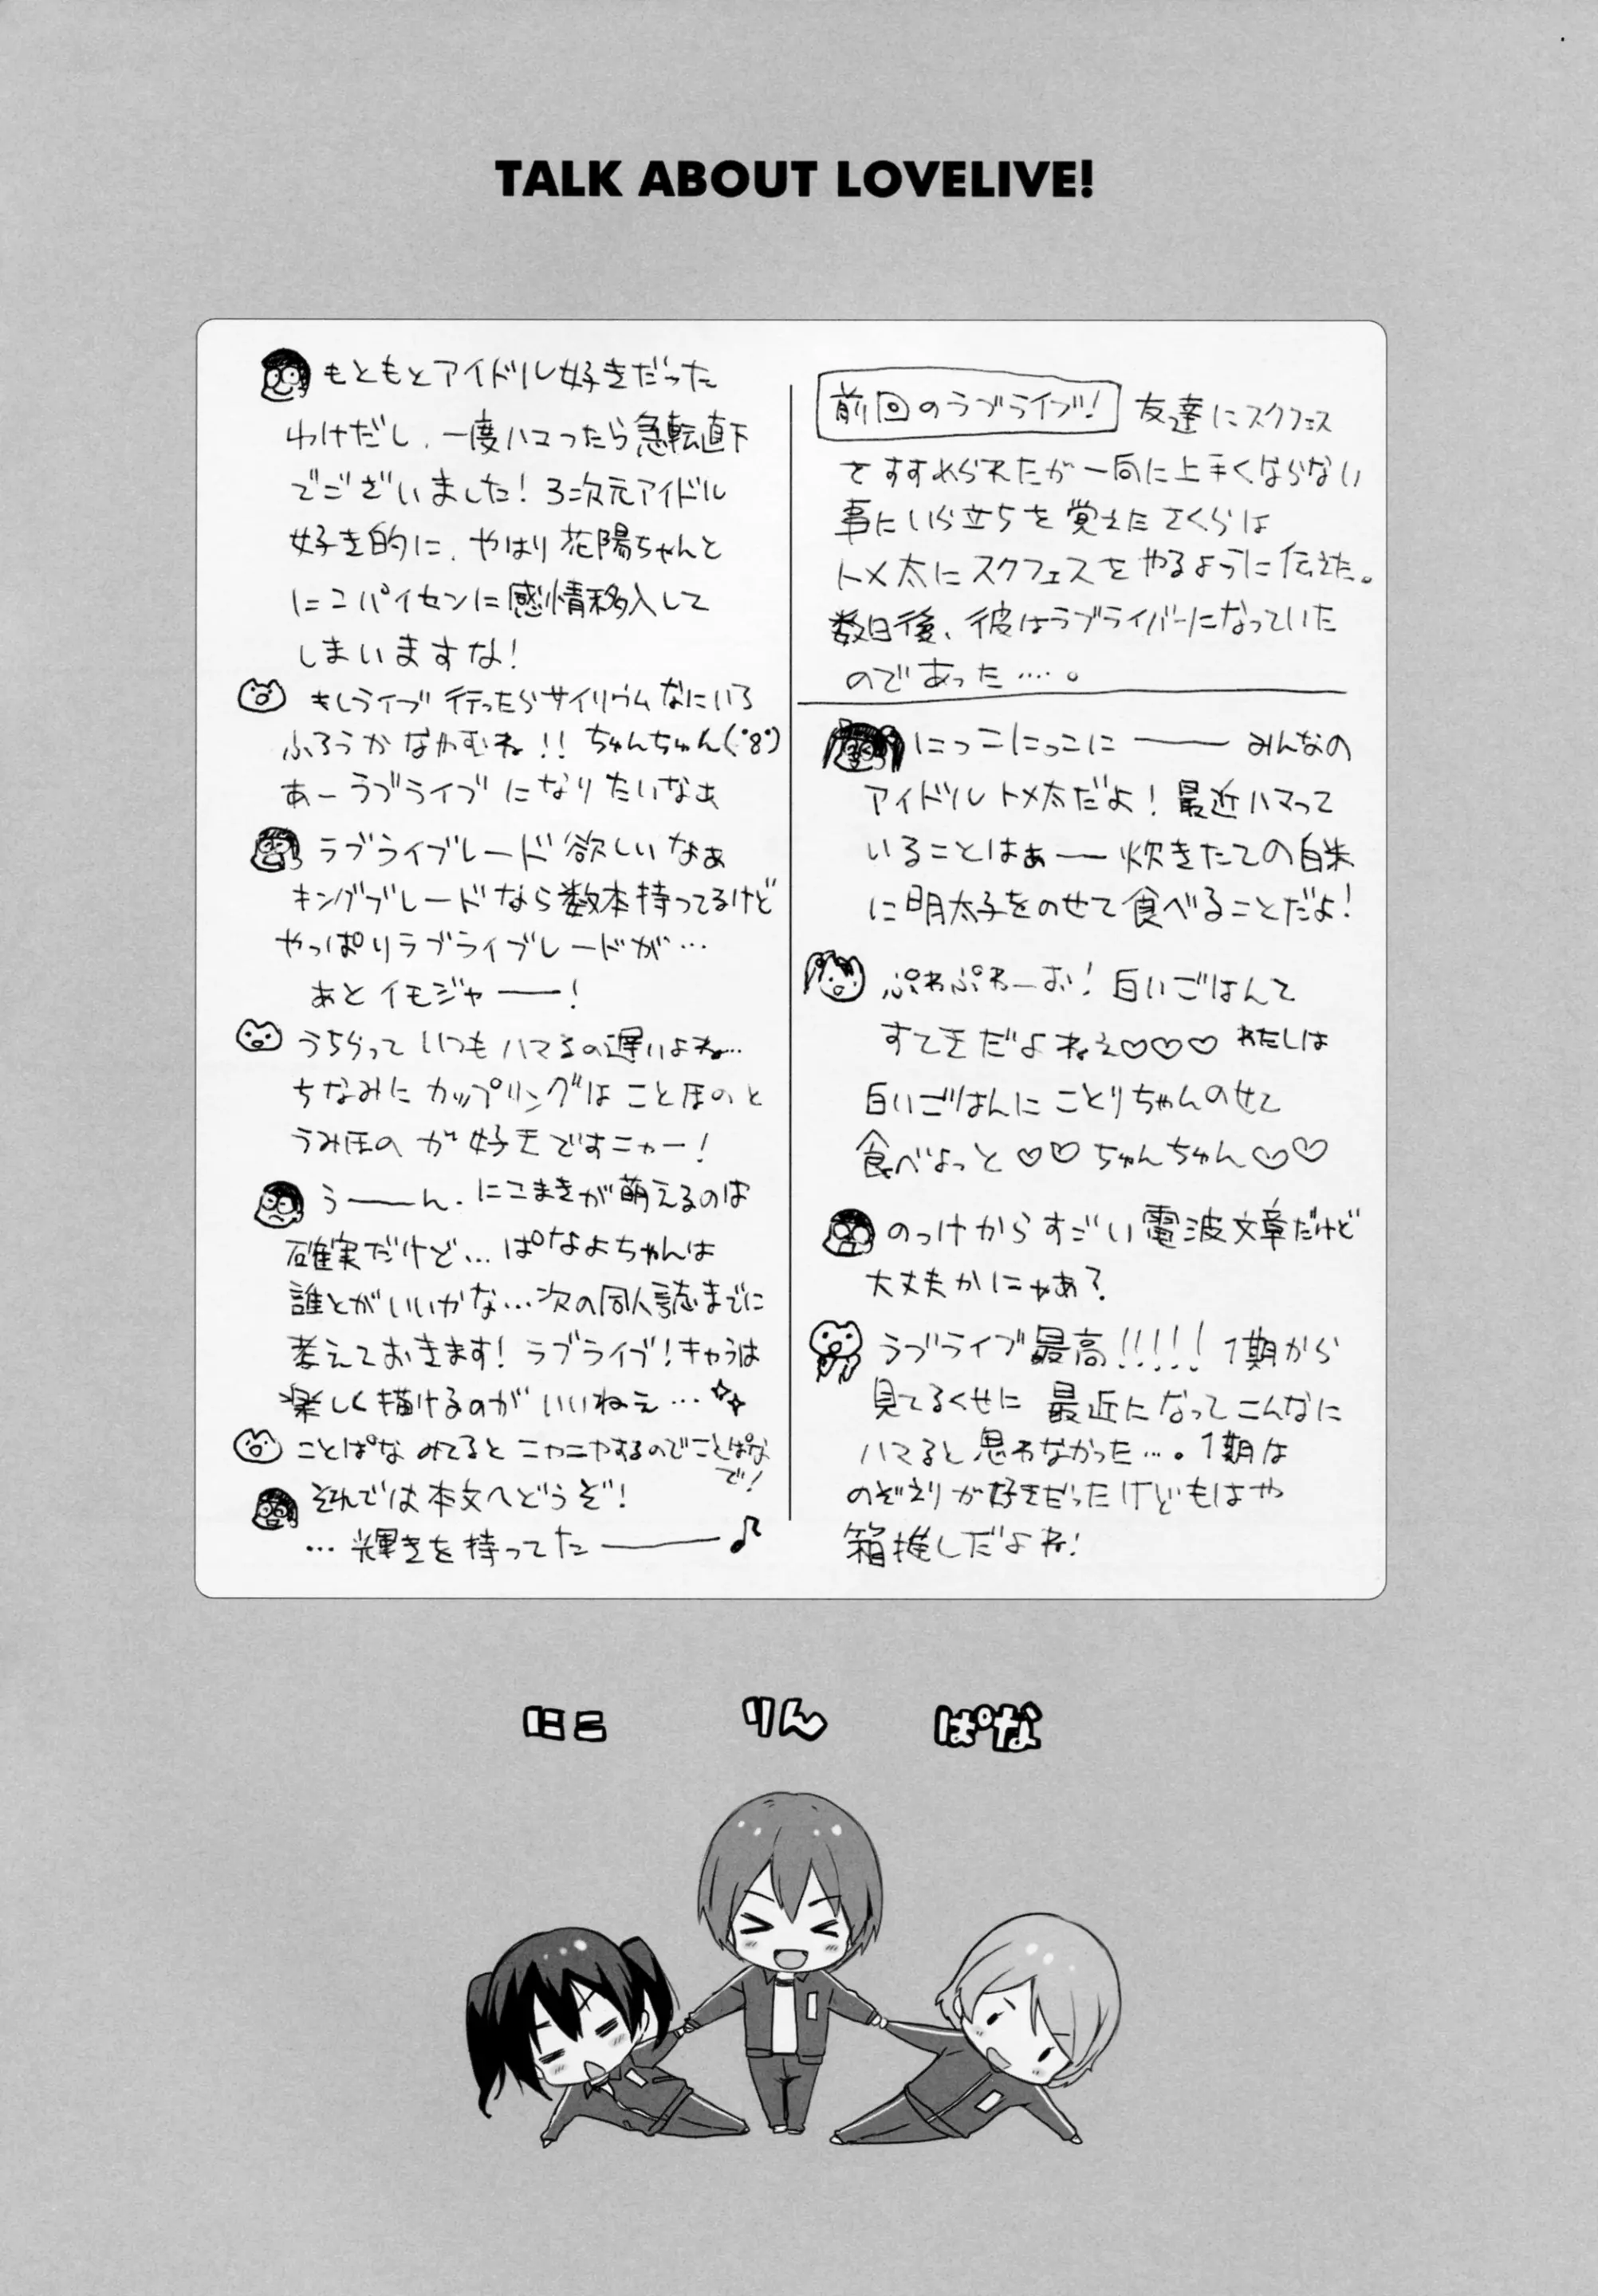 TALK ABOUT LOVELIVE!
前回のラブライブ! 友達にスクフェス
をすすめられたが一向に上手くならない
事にいら立ちを覚えたさくらは
トメ太にスクフェスをやるように伝えた。
数日後、彼はラブライバーになっていた
のであった….。
にっこにっこに―― みんなの
アイドルトメ太だよ! 最近ハマって
いることはぁ――炊きたての白米
に明太子をのせて食べることだよ!
ぷわぷわーお! 白いごはんて
すてきだよねえ♡♡♡ わたしは
白いごはんに ことりちゃんのせて
食べよっと ♡♡ ちゅんちゅん♡♡
のっけからすごい電波文章だけど
大丈夫かにゃあ?
ラブライブ最高!!!!! 1期から
見てるくせに 最近になってこんなに
ハマると思わなかった…。1期は
のぞえりが好きだったけどもはや
箱推しだよね!
もともとアイドル好きだった
わけだし、一度ハマったら急転直下
でございました! 3次元アイドル
好き的に、やはり花陽ちゃんと
にこパイセンに感情移入して
しまいますな!
もしライブ行ったらサイリウムなにいろ
ふろうかなやむね!! ちゅんちゅん(・8・)
あーラブライブになりたいなぁ
ラブライブレード欲しいなぁ
キングブレードなら数本持ってるけど
やっぱりラブライブレードが…
あとイモジャ――!
うちらっていつもハマるの遅いよね…
ちなみにカップリングはことほのと
うみほのが好きですニャー!
う――ん、にこまきが萌えるのは
確実だけど… ぱなよちゃんは
誰とがいいかな…次の同人誌までに
考えておきます! ラブライブ!キャラは
楽しく描けるのがいいねえ…
ことぱなみてるとニヤニヤするのでことぱな
で!
それでは本文へどうぞ!
…輝きを待ってた――♪
にこ りん ぱな